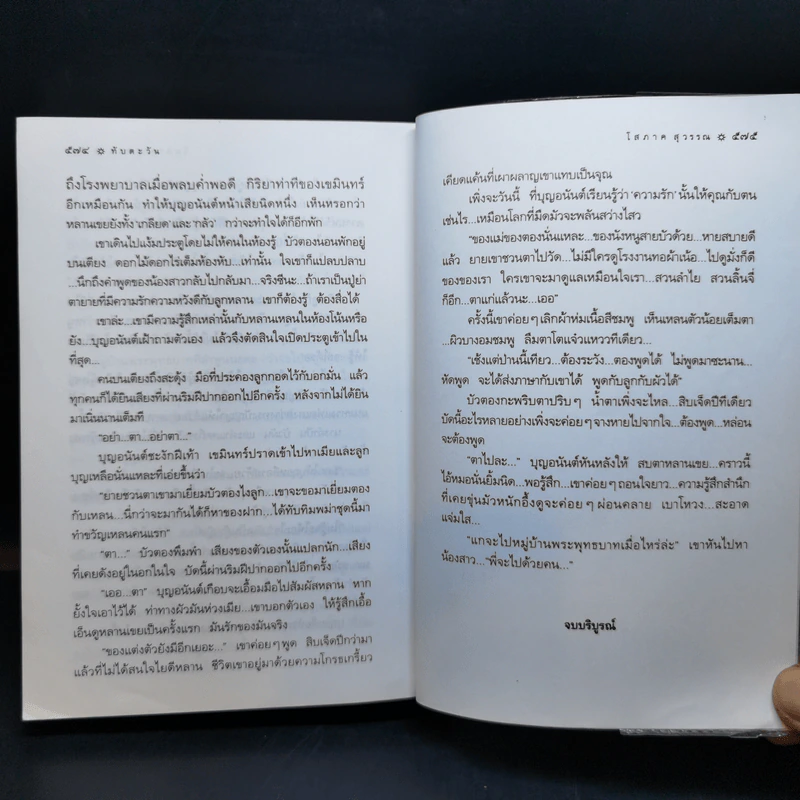 ๕๗๔ ☼ ทับตะวัน
ถึงโรงพยาบาลเมื่อพลบค่ำพอดี กิริยาท่าทีของเขมินทร์
อีกเหมือนกัน ทำให้บุญอนันต์หน้าเสียนิดหนึ่ง เห็นทรอกว่า
หลานเขยยังทั้ง ‘เกลียด’ และ ‘กลัว’ กว่าจะทำใจได้ก็อีกพัก
เขาเดินไปแง้มประตูโดยไม่ให้คนในห้องรู้ บัวตองนอนพักอยู่
บนเตียง ดอกไม้ดอกไร่เต็มห้องหับ...เท่านั้น ใจเขาก็แปลบปลาบ
...นึกถึงคำพูดของน้องสาวกลับไปกลับมา...จริงซีนะ...ถ้าเราเป็นปู่ย่า
ตายายที่มีความรักความหวังดีกับลูกหลาน เขาก็ต้องรู้ ต้องสื่อได้
เขาล่ะ...เขามีความรู้สึกเหล่านั้นกับหลานเหลนในห้องโน้นหรือ
ยัง...บุญอนันต์เฝ้าถามตัวเอง แล้วจึงตัดสินใจเปิดประตูเข้าไปใน
ที่สุด...
คนบนเตียงถึงสะดุ้ง มือที่ประคองลูกกอดไว้กับอกมั่น แล้ว
ทุกคนก็ได้ยินเสียงที่ผ่านริมฝีปากออกไปอีกครั้ง หลังจากไม่ได้ยิน
มาเนิ่นนานเต็มที
“อย่า...ตา...อย่าตา...”
บุญอนันต์ชะงักฝีเท้า เขมินทร์ปราดเข้าไปหาเมียและลูก
บุญเหลือนั่นแหละที่เอ่ยขึ้นว่า
“ยายชวนตาเขามาเยี่ยมบัวตองไงลูก...เขาจะขอมาเยี่ยมตอง
กับเหลน...นี่กว่าจะมากันได้ก็หาของฝาก...ได้ทับทิมพม่าชุดนี้มา
ทำขวัญเหลนคนแรก”
“ตา...” บัวตองพึมพำ เสียงของตัวเองนั้นแปลกนัก...เสียง
ที่เคยดังอยู่ในอกในใจ บัดนี้ผ่านริมฝีปากออกไปอีกครั้ง
“เออ...ตา” บุญอนันต์เกือบจะเอื้อมมือไปสัมผัสหลาน หาก
ยั้งใจเอาไว้ได้ ท่าทางผัวมันห่วงเมีย...เขาบอกตัวเอง ให้รู้สึกเอื้อ
เอ็นดูหลานเขยเป็นครั้งแรก มันรักของมันจริง
“ของแต่งตัวยังมีอีกเยอะ...” เขาค่อยๆ พูด สิบเจ็ดปีกว่ามา
แล้วที่ไม่ได้สนใจไยดีหลาน ชีวิตเขาอยู่มาด้วยความโกรธเกรี้ยว
โสภาค สุวรรณ ☼ ๕๗๕
เคียดแค้นที่เผาผลาญเขาแทบเป็นจุณ
เพิ่งจะวันนี้ ที่บุญอนันต์เรียนรู้ว่า ‘ความรัก’ นั้นให้คุณกับตน
เช่นไร...เหมือนโลกที่มืดมัวจะพลันสว่างไสว
“ของแม่ของตองนั่นแหละ...ของนังหนูสายบัวด้วย...หายสบายดี
แล้ว ยายเขาชวนตาไปวัด...ไม่มีใครดูโรงงานทอผ้าเน้อ...ไปดูมั่งก็ดี
ของของเรา ใครเขาจะมาดูแลเหมือนใจเรา...สวนลำไย สวนลิ้นจี่
ก็อีก...ตาแก่แล้วนะ...เออ”
ครั้งนี้เขาค่อยๆ เลิกผ้าห่มเนื้อสีชมพู เห็นเหลนตัวน้อยเต็มตา
...ผิวบางอมชมพู ลืมตาโตแจ๋วแหววทีเดียว...
“เช้งแต่ป่านนี้เทียว...ต้องระวัง...ตองพูดได้ ไม่พูดมาซะนาน...
หัดพูด จะได้ส่งภาษากับเขาได้ พูดกับลูกกับผัวได้”
บัวตองกะพริบตาปริบๆ น้ำตาเพิ่งจะไหล...สิบเจ็ดปีทีเดียว
บัดนี้อะไรหลายอย่างเพิ่งจะค่อยๆ จางหายไปจากใจ...ต้องพูด...หล่อน
จะต้องพูด
“ตาไปละ...” บุญอนันต์หันหลังให้ สบตาหลานเขย...คราวนี้
ไอ้หมอนั่นยิ้มนิด...พอรู้สึก...เขาค่อยๆ ถอนใจยาว...ความรู้สึกสำนึก
ที่เคยขุ่นมัวหนักอึ้งดูจะค่อยๆ ผ่อนคลาย เบาโหวง...สะอาด
แจ่มใส...
“แกจะไปหมู่บ้านพระพุทธบาทเมื่อไหร่ล่ะ” เขาหันไปหา
น้องสาว...“พี่จะไปด้วยคน...”
จบบริบูรณ์